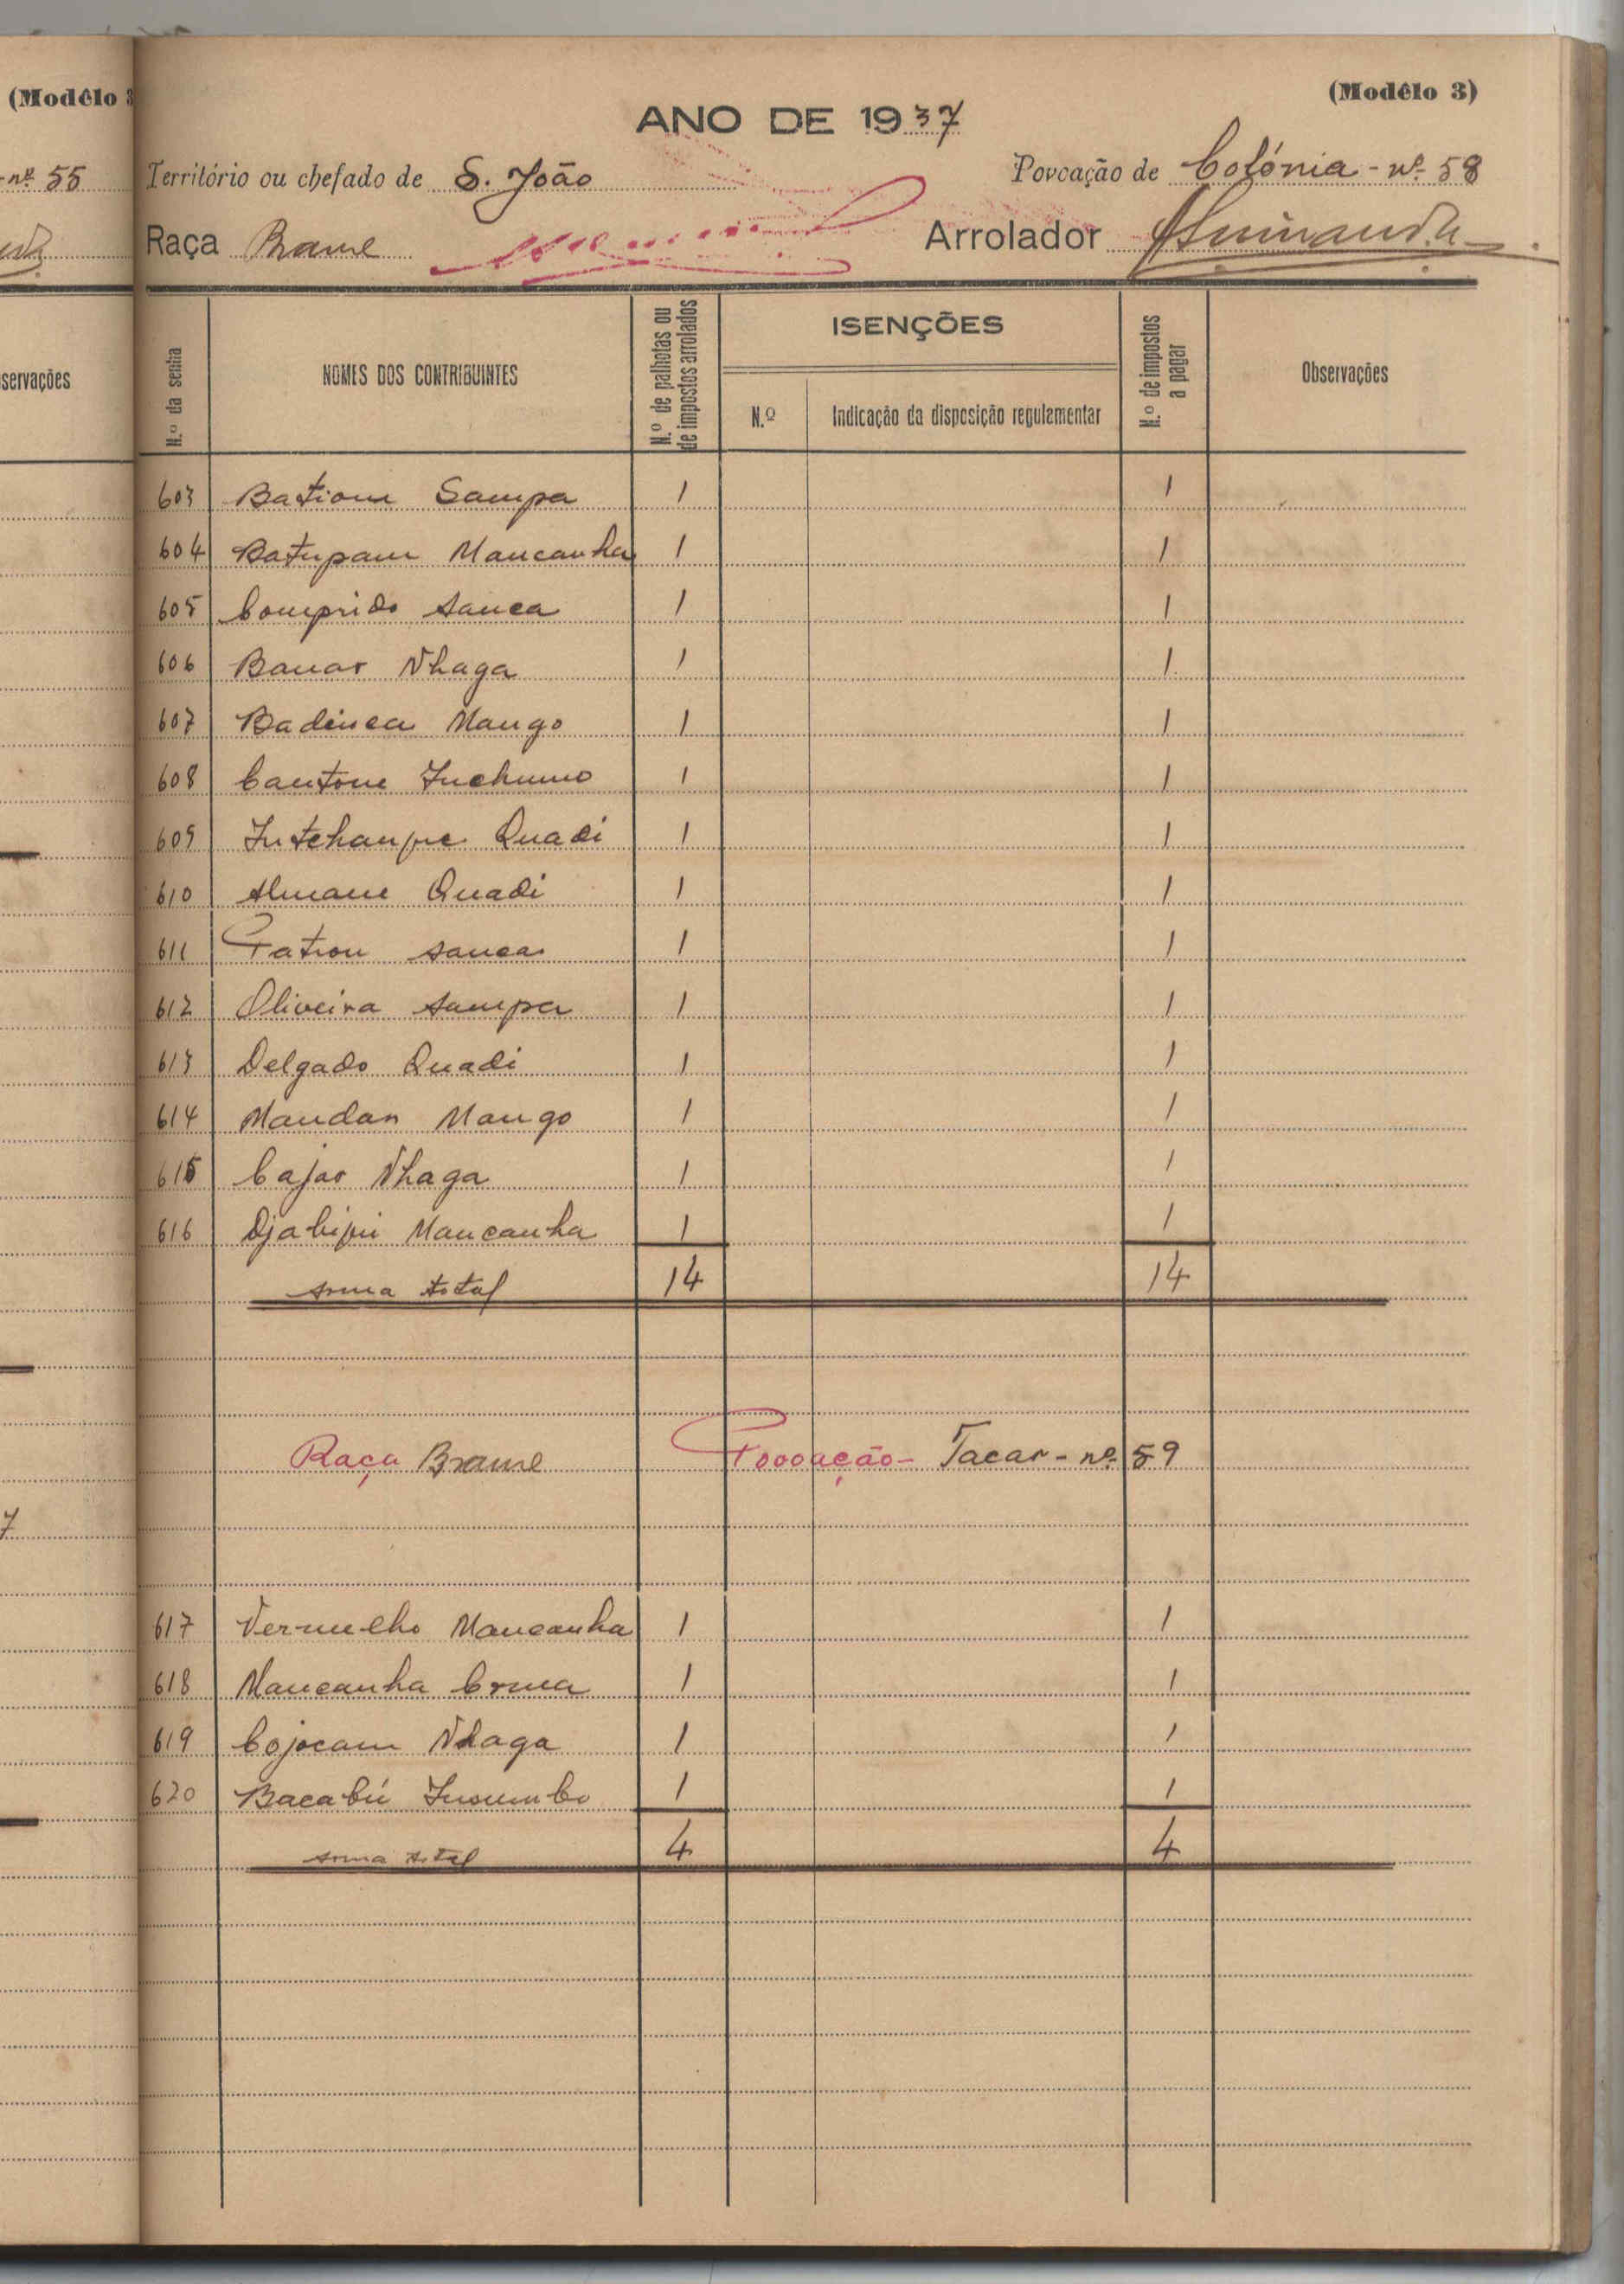 (Modêlo 3
-nº 55
servações
7
(Modêlo 3)
ANO DE 1937
Território ou chefado de S. João
Povoação de Colónia - nº 58
Raça Brame
Arrolador
N.º da senha
NOMES DOS CONTRIBUINTES
N.º de palhotas ou de impostos arrolados
ISENÇÕES
N.º
Indicação da disposição regulamentar
N.º de impostos a pagar
Observações
603 Batiom Sampa 1 1
604 Batupam Mancanha 1 1
605 Comprido Sanca 1 1
606 Banar Nhaga 1 1
607 Badinca Mango 1 1
608 Cantone 1 1
609 Quadi 1 1
610 Quadi 1 1
611 Patron Sanca 1 1
612 Oliveira Sampa 1 1
613 Delgado Quadi 1 1
614 Mandan Mango 1 1
615 Cajar Nhaga 1 1
616 Mancanha 1 1
Soma total 14 14
Raça Brame Povoação - Tacar - nº 59
617 Vermelho Mancanha 1 1
618 Mancanha 1 1
619 Cojocam Nhaga 1 1
620 Bacabú 1 1
Soma total 4 4